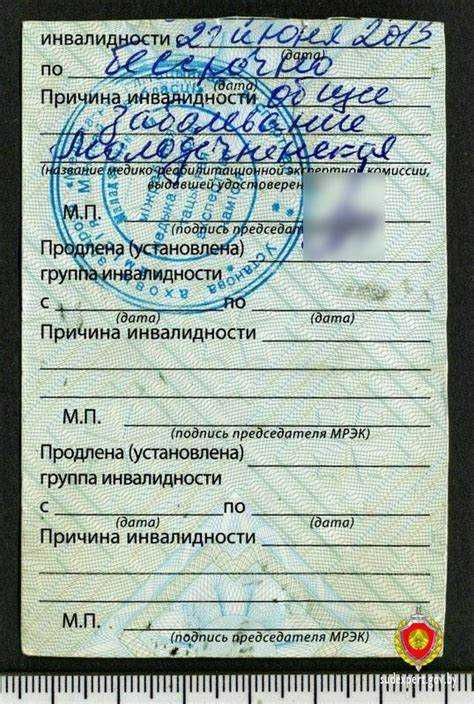 инвалидности 27 июня 2013
(дата)
по бессрочно
(дата)
Причина инвалидности общее
заболевание
Молодечненская
(название медико-реабилитационной экспертной комиссии,
выдавшей удостоверен
М.П.
(подпись председат
Продлена (установлена)
группа инвалидности
с по
(дата) (дата)
Причина инвалидности
М.П.
(подпись председателя МРЭК)
Продлена (установлена)
группа инвалидности
с по
(дата) (дата)
Причина инвалидности
М.П.
(подпись председателя МРЭК)
sudexpert.gov.by